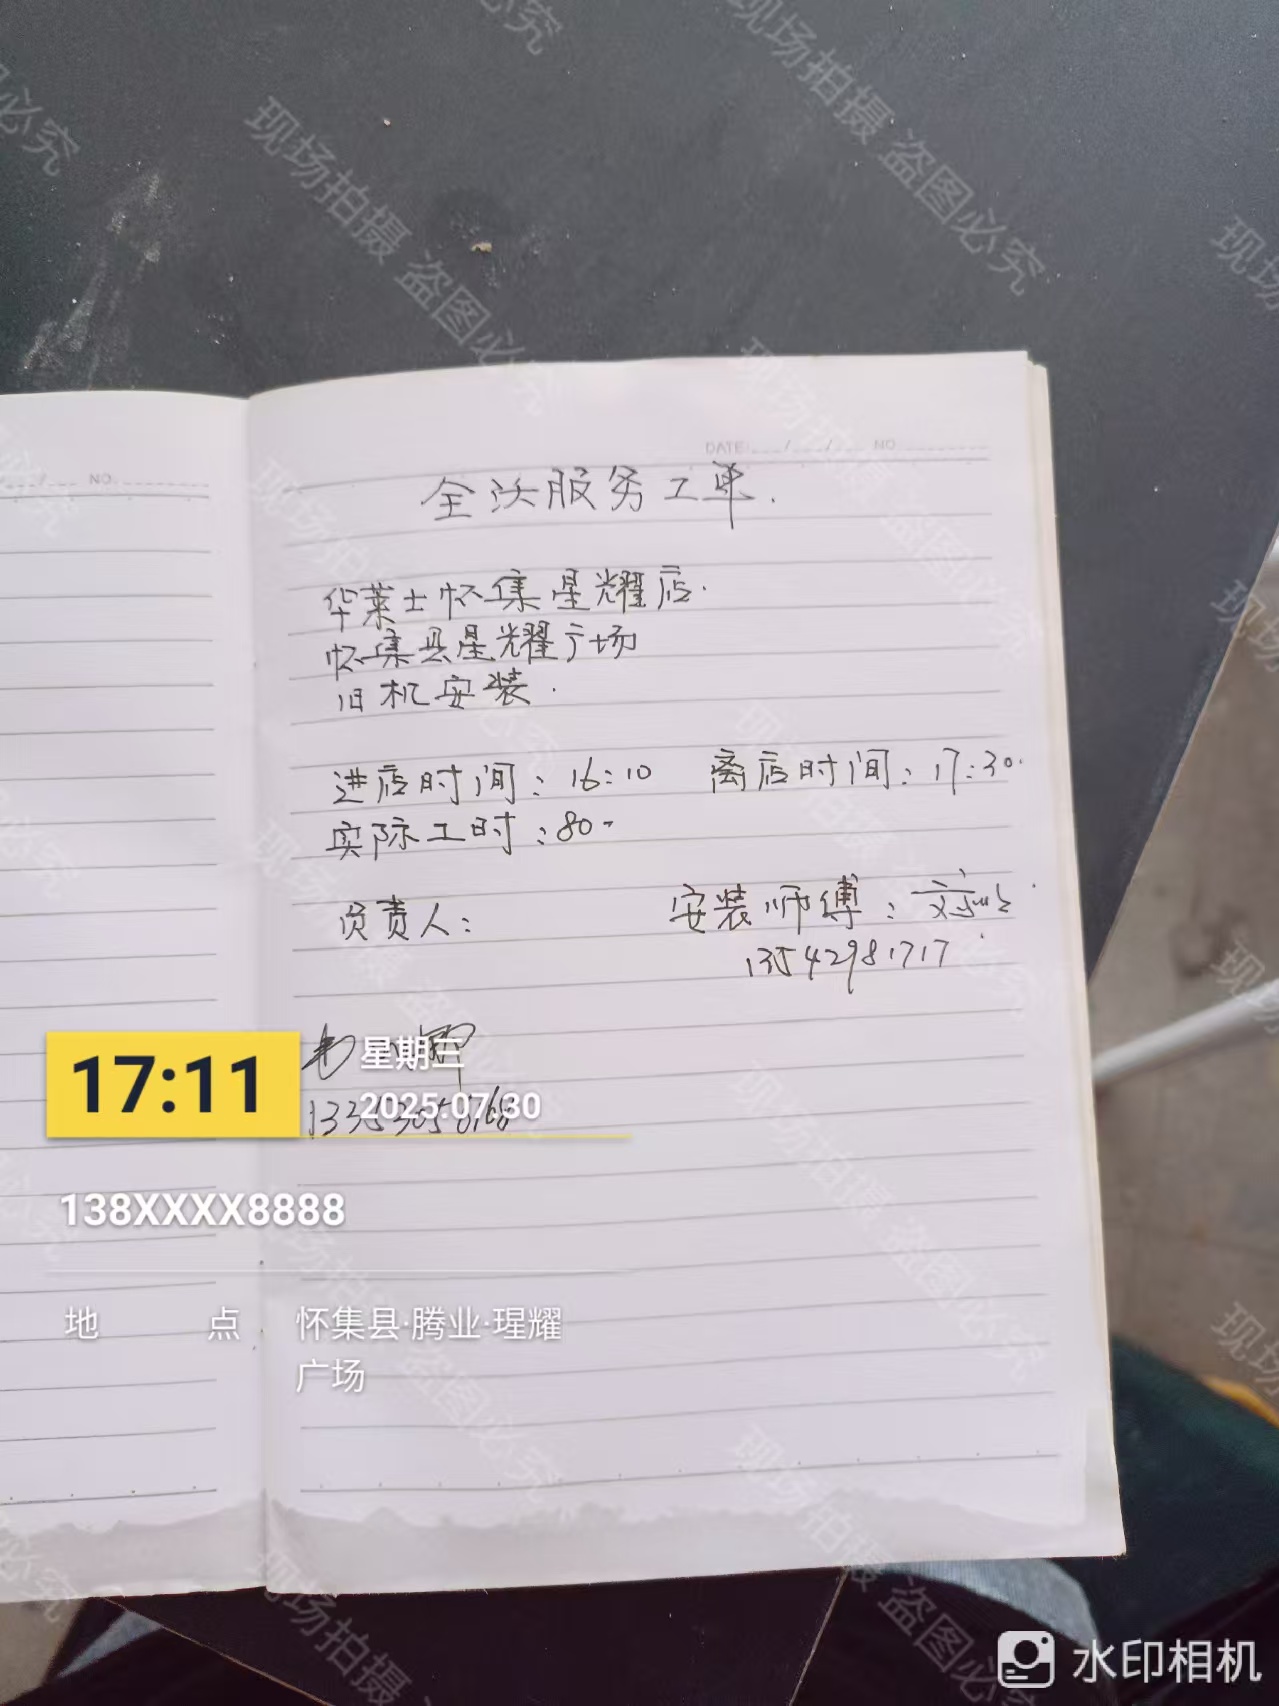 DATE: / / NO.
NO.
全沃服务工单.
华莱士怀集星耀店.
怀集县星耀广场
旧机安装.
进店时间:16:10 离店时间:17:30.
实际工时:80-
负责人: 安装师傅:
13542981717
17:11
星期三
2025.07.30
138XXXX8888
地 点 怀集县·腾业·瑆耀
广场
现场拍摄 盗图必究
水印相机